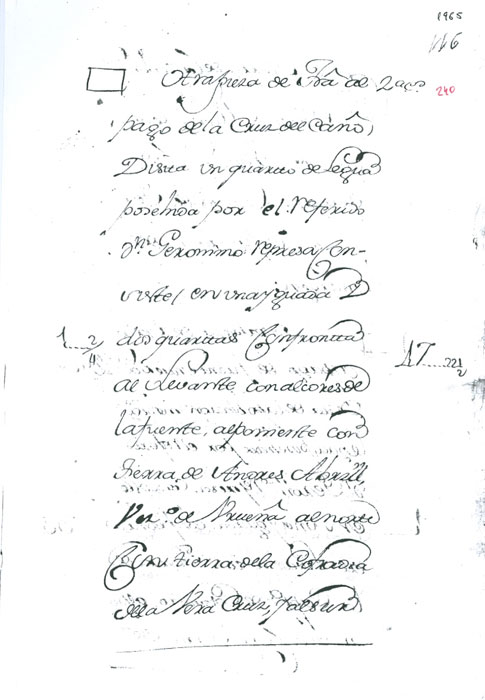 1965
116
240
Otra pieza de Tra al
pago de la Cruz del Caño,
Dista un quarto de legua
posehida por el referido
Dn Geronimo represa Con-
siste en una yguada y
1 2/4 dos quartas Confronta 17 22 1/2
al Levante con alcores de
la fuente, al poniente con
tierra de Andres Abrill,
Vezo de Urueña al norte
Con tierra de la Cofradia
de la Vera Cruz, y al sur